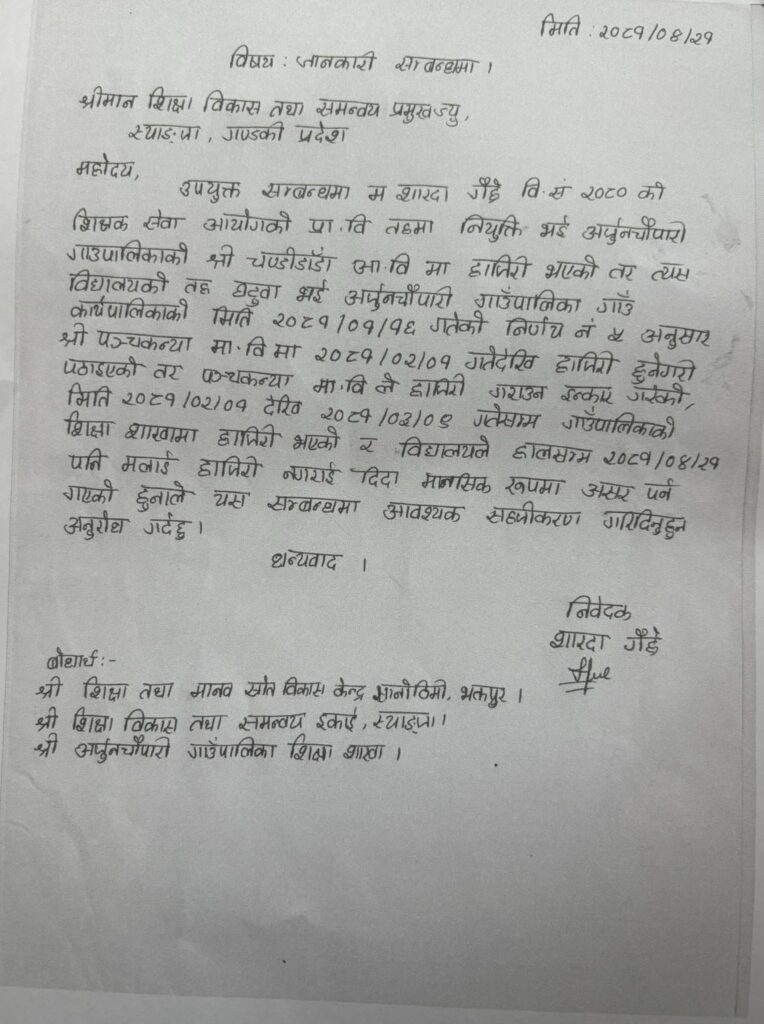 मिति : २०८१/०४/२१
विषय : जानकारी सम्बन्धमा ।
श्रीमान शिक्षा विकास तथा समन्वय प्रमुखज्यु,
स्याङ्जा, गण्डकी प्रदेश
महोदय,
उपयुक्त सम्बन्धमा म शारदा गैह्रे वि.सं २०८० को
शिक्षक सेवा आयोगको प्रा.वि तहमा नियुक्ति भई अर्जुनचौपारी
गाउपालिकाको श्री चण्डीडाँडा आ.वि मा हाजिरी भएको तर त्यस
विद्यालयको तह घटुवा भई अर्जुनचौपारी गाउँपालिका गाउँ
कार्यपालिकाको मिति २०८१/०१/१६ गतेको निर्णय नं ५ अनुसार
श्री पञ्चकन्या मा.वि मा २०८१/०२/०१ गतेदेखि हाजिरी हुनेगरी
पठाइएको तर पञ्चकन्या मा.वि ले हाजिरी गराउन इन्कार गरेको,
मिति २०८१/०२/०१ देखि २०८१/०३/०९ गतेसम्म गाउँपालिकाको
शिक्षा शाखामा हाजिरी भएको र विद्यालयले हालसम्म २०८१/०४/२१
पनि मलाई हाजिरी नगराई दिदा मानसिक रूपमा असर पर्न
गएको हुनाले यस सम्बन्धमा आवश्यक सहजीकरण गरिदिनुहुन
अनुरोध गर्दछु ।
धन्यवाद ।
निवेदक
शारदा गैह्रे
बोधार्थ :-
श्री शिक्षा तथा मानव स्रोत विकास केन्द्र सानोठिमी, भक्तपुर ।
श्री शिक्षा विकास तथा समन्वय इकाई, स्याङ्जा ।
श्री अर्जुनचौपारी गाउँपालिका शिक्षा शाखा ।